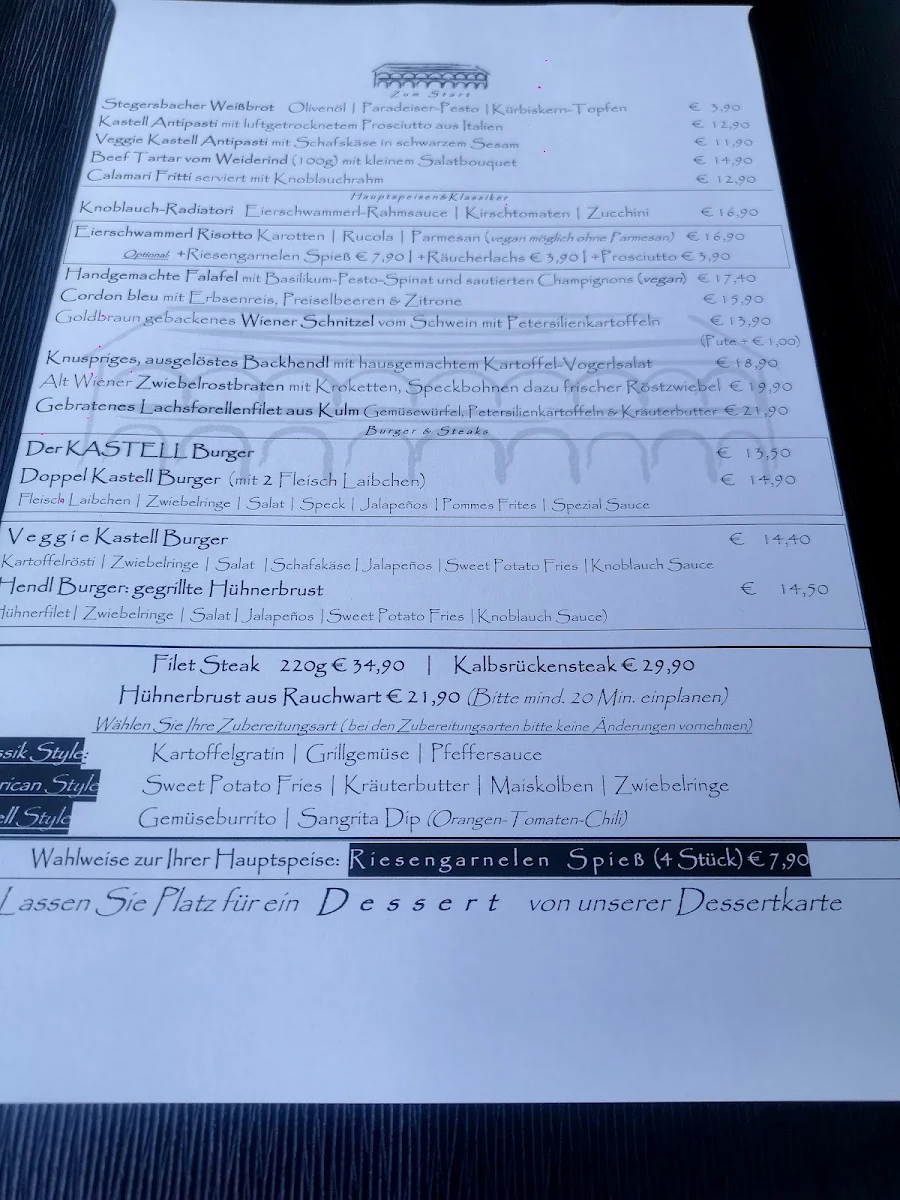 Zum Start
Stegersbacher Weißbrot Olivenöl | Paradeiser-Pesto | Kürbiskern-Topfen € 3,90
Kastell Antipasti mit luftgetrocknetem Prosciutto aus Italien € 12,90
Veggie Kastell Antipasti mit Schafskäse in schwarzem Sesam € 11,90
Beef Tartar vom Weiderind (100g) mit kleinem Salatbouquet € 14,90
Calamari Fritti serviert mit Knoblauchrahm € 12,90
Hauptspeisen&Klassiker
Knoblauch-Radiatori Eierschwammerl-Rahmsauce | Kirschtomaten | Zucchini € 16,90
Eierschwammerl Risotto Karotten | Rucola | Parmesan (vegan möglich ohne Parmesan) € 16,90
Optional: +Riesengarnelen Spieß € 7,90 | +Räucherlachs € 3,90 | +Prosciutto € 3,90
Handgemachte Falafel mit Basilikum-Pesto-Spinat und sautierten Champignons (vegan) € 17,40
Cordon bleu mit Erbsenreis, Preiselbeeren & Zitrone € 15,90
Goldbraun gebackenes Wiener Schnitzel vom Schwein mit Petersilienkartoffeln € 13,90
(Pute + € 1,00)
Knuspriges, ausgelöstes Backhendl mit hausgemachtem Kartoffel-Vogerlsalat € 18,90
Alt Wiener Zwiebelrostbraten mit Kroketten, Speckbohnen dazu frischer Röstzwiebel € 19,90
Gebratenes Lachsforellenfilet aus Kulm Gemüsewürfel, Petersilienkartoffeln & Kräuterbutter € 21,90
Burger & Steaks
Der KASTELL Burger € 13,50
Doppel Kastell Burger (mit 2 Fleisch Laibchen) € 14,90
Fleisch Laibchen | Zwiebelringe | Salat | Speck | Jalapeños | Pommes Frites | Spezial Sauce
Veggie Kastell Burger € 14,40
Kartoffelrösti | Zwiebelringe | Salat | Schafskäse | Jalapeños | Sweet Potato Fries | Knoblauch Sauce
Hendl Burger: gegrillte Hühnerbrust € 14,50
Hühnerfilet | Zwiebelringe | Salat | Jalapeños | Sweet Potato Fries | Knoblauch Sauce)
Filet Steak 220g € 34,90 | Kalbsrückensteak € 29,90
Hühnerbrust aus Rauchwart € 21,90 (Bitte mind. 20 Min. einplanen)
Wählen Sie Ihre Zubereitungsart (bei den Zubereitungsarten bitte keine Änderungen vornehmen)
ssik Style: Kartoffelgratin | Grillgemüse | Pfeffersauce
rican Style Sweet Potato Fries | Kräuterbutter | Maiskolben | Zwiebelringe
ell Style Gemüseburrito | Sangrita Dip (Orangen-Tomaten-Chili)
Wahlweise zur Ihrer Hauptspeise: Riesengarnelen Spieß (4 Stück) € 7,90
Lassen Sie Platz für ein Dessert von unserer Dessertkarte